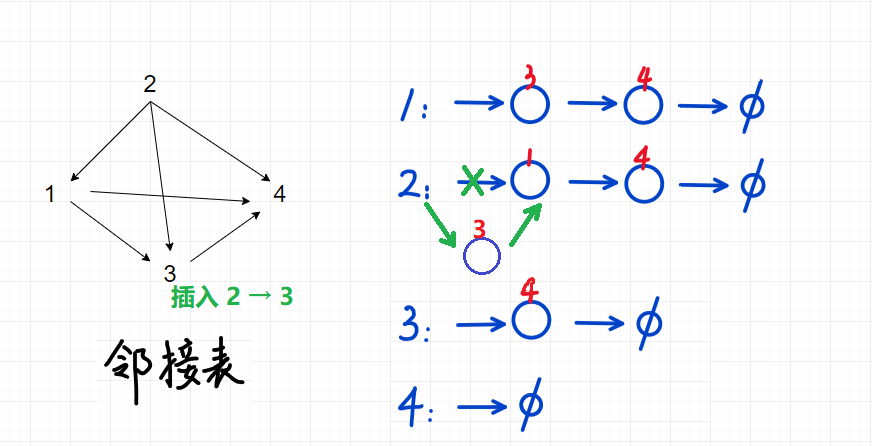 2
1
4
3
插入 2 → 3
邻接表
1: → 3 → 4 → ∅
2: → 1 → 4 → ∅
3
3: → 4 → ∅
4: → ∅